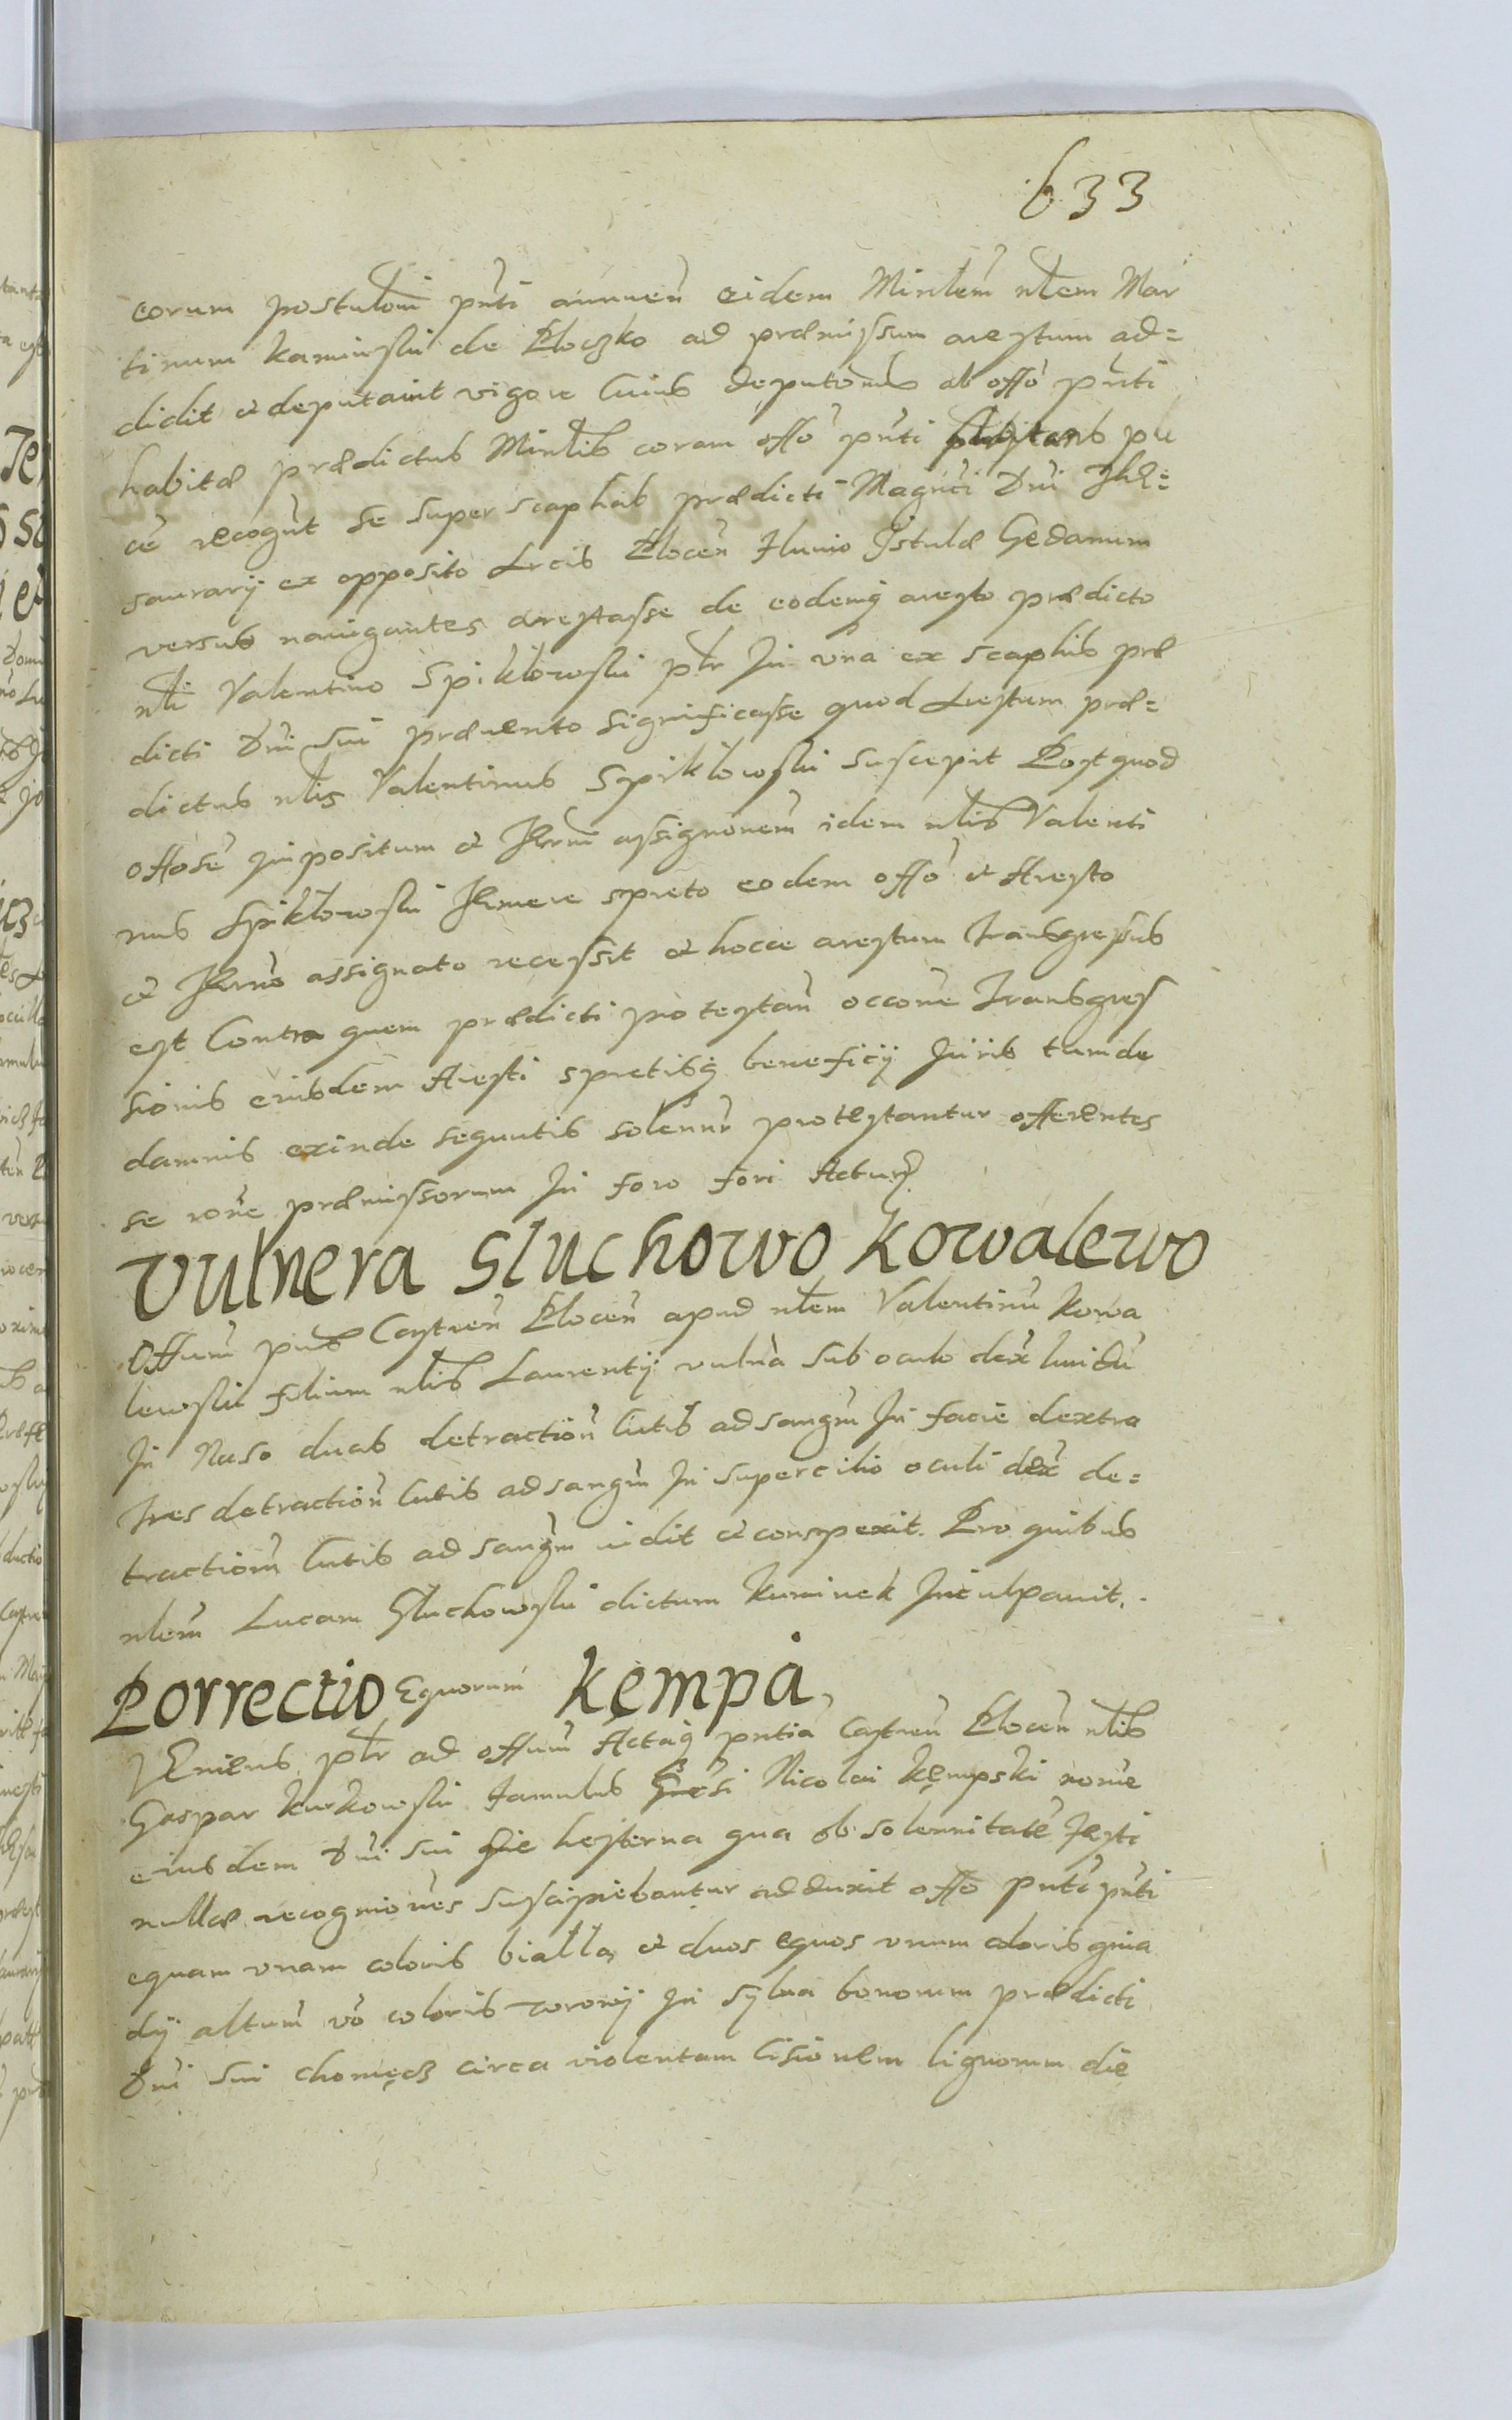 633
eorum postulōni pn̄ti annuen̄ eidem Minlem̄ nlem Mar
tinum Kamiński de Ploczko ad præmissum arestum ad=
didit et deputavit vigore cuius deputōnis ab offō pn̄ti
habitæ prædictus Minlis coram offō pn̄ti pu
cē recogūt se super scaphas prædicti Magn̄ci Dn̄i The=
saurarij ex opposito Arcis Plocen̄ Fluvio Istulæ Gedanum
versus navigantes arestasse de eodemq aresto prædicto
nli Valentino Spiklowski ptr In una ex scaphis præ
dicti Dn̄i sui prævento significasse quod Arestum præ=
dictus nlis Valentinus Spiklowski suscepit Postquod
offōse impositum et Term̄ assignōnem̄ idem nlis Valenti
nus Spiklowski Temere spreto eodem offō et Aresto
et Termn̄o assignato recessit et hocce arestum transgressus
est Contra quem prædicti protestan̄ occōne Transgres
sionis eiusdem Aresti spretisq beneficij Juris tum de
damnis exinde sequutis solen̄nr protestantur offerentes
se rōne præmissorum In foro fori Actur
Vulnera Sluchowo Kowalewo
Offum̄ pn̄s Castren̄ Plocen̄ apud nlem Valentinū Kowa
lewski filium nlis Laurentij vulnā sub oculo dex̄ lividū
In Naso duas detraction̄ cutis ad sangm̄ In facie dextra
tres detraction̄ cutis ad sangm̄ In supercilio oculi dex̄ de=
traction̄ cutis ad sangm̄ vidit et conspexit. Pro quibus
nlem̄ Lucam Sluchowski dictum Kuminek Inculpavit.
Porrectio Equorum Kempa
Veniens ptr ad offum̄ Actaq pn̄tia Castren̄ Plocen̄ nlis
Gaspar Kurkowski famulus Gn̄si Nicolai Kęmpski nomē
eiusdem Dn̄i sui die hesterna qua ob solennitatē festi
nullæ recognōnes suscipiebantur adduxit offō pn̄ti
equam unam coloris bialla et duos equos unum coloris gnia
dy altum̄ vō coloris wrony In sylva bonorum prædicti
Dn̄i sui chomęcz circa violentam cisionem lignorum die